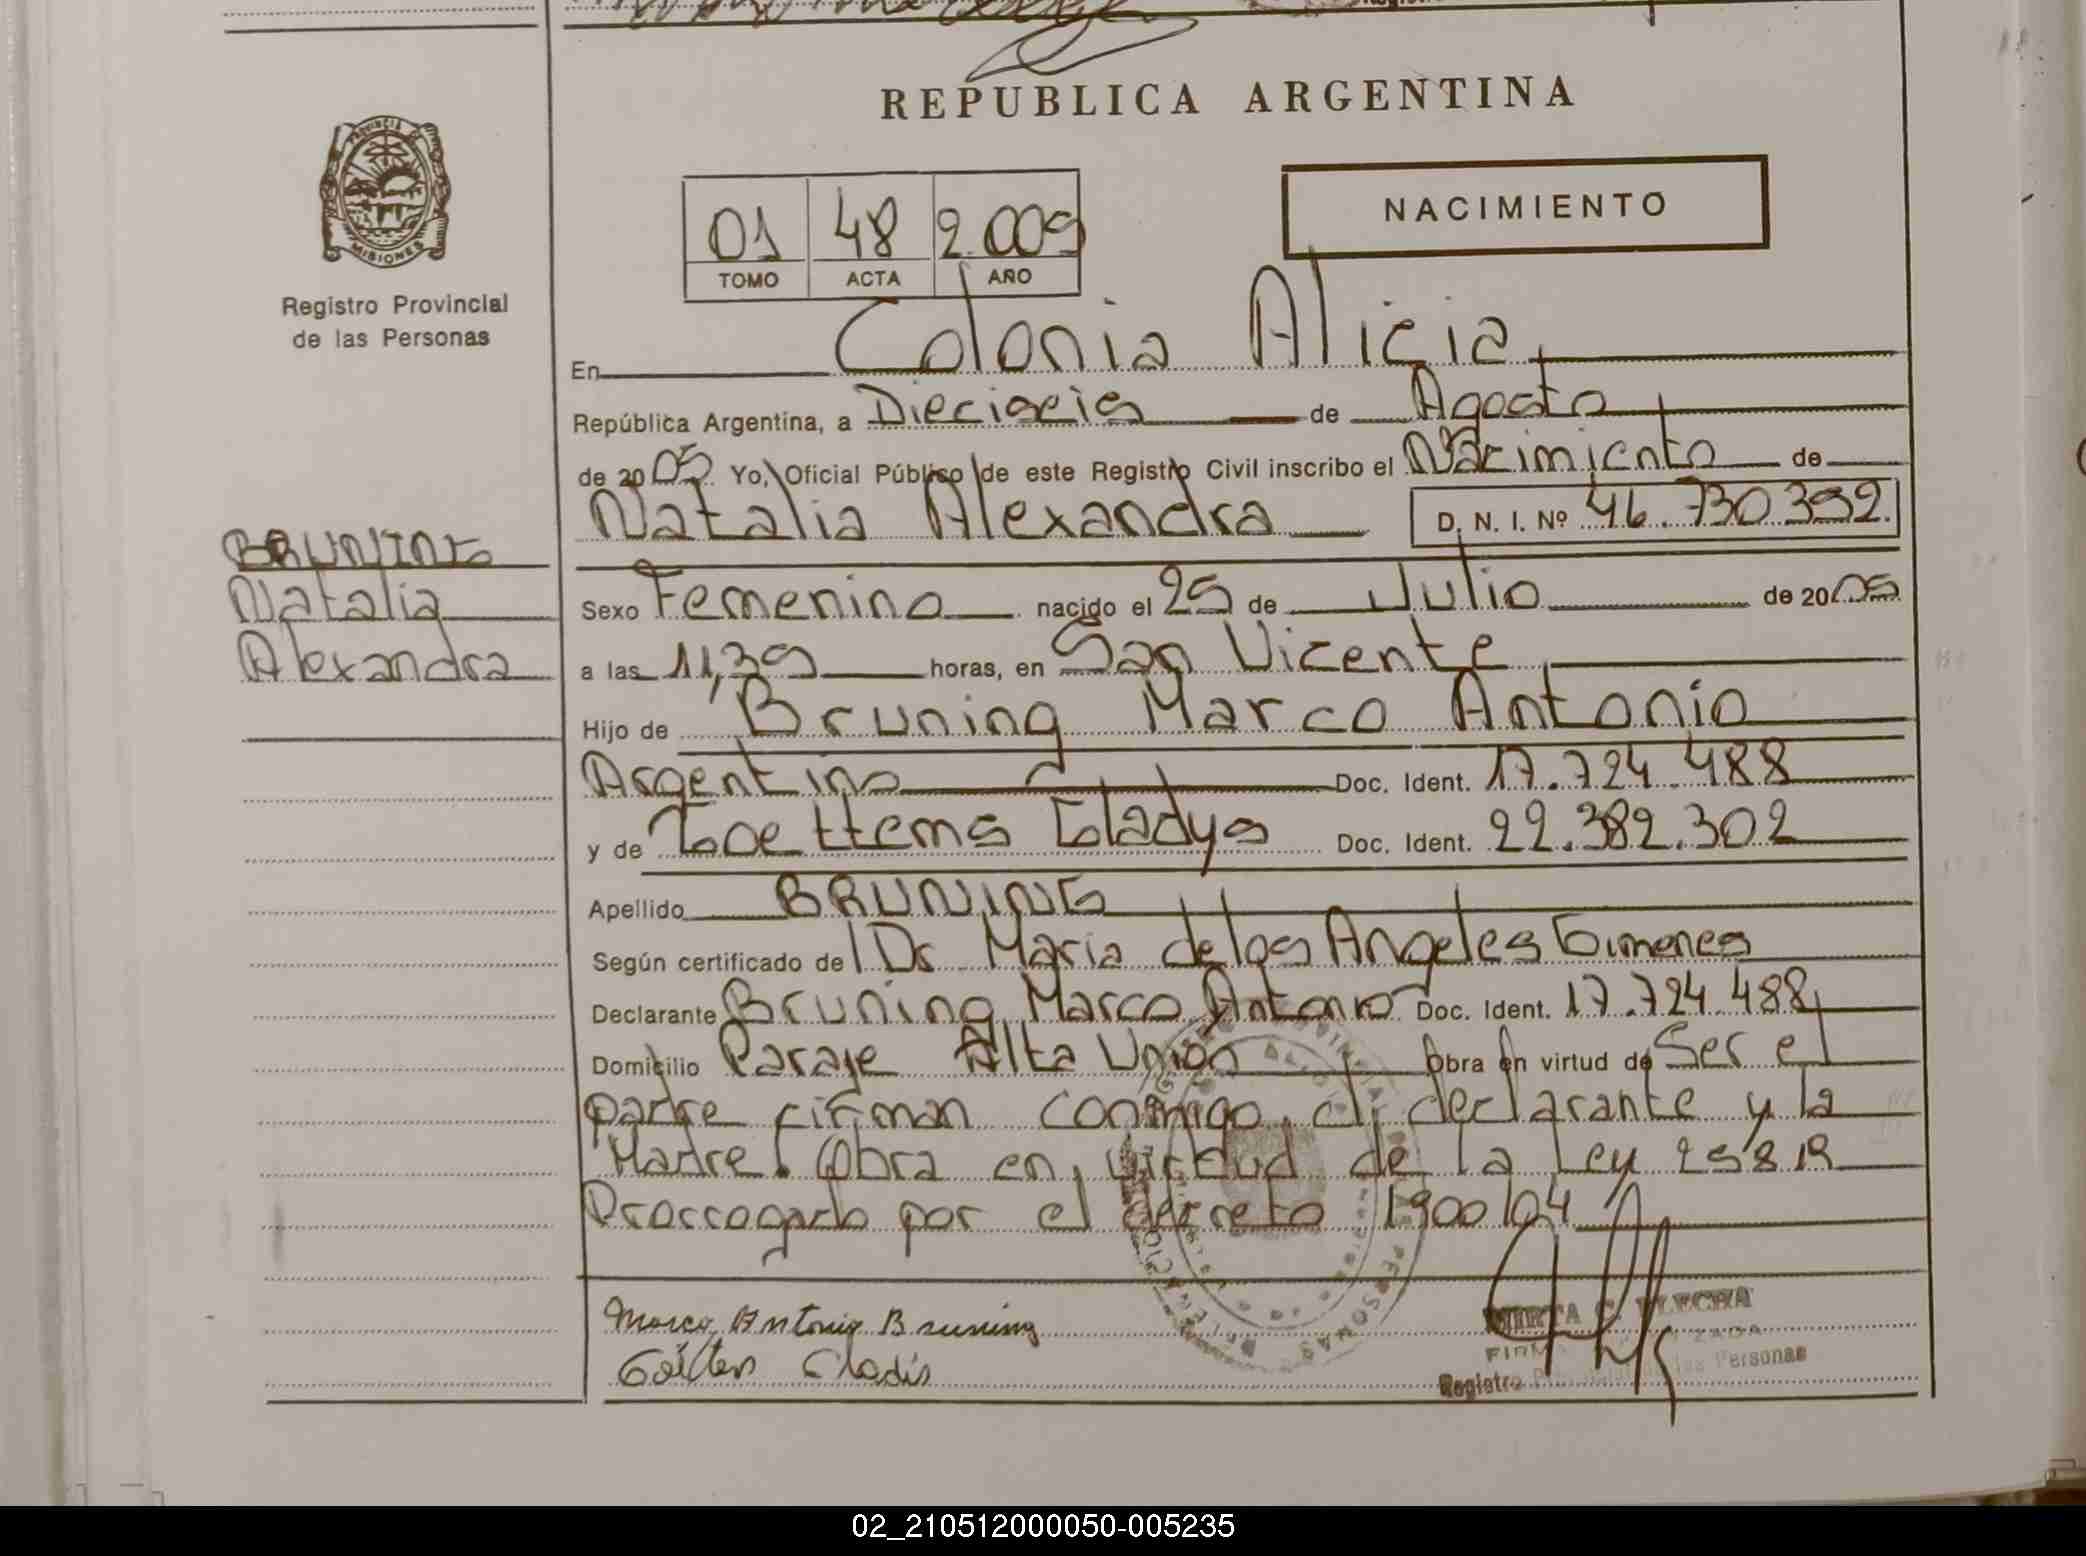 REPUBLICA ARGENTINA
PROVINCIA DE
MISIONES
Registro Provincial
de las Personas
01 48 2.009
TOMO ACTA AÑO
NACIMIENTO
En Colonia Alicia
República Argentina, a Dieciseis de Agosto
de 2005 Yo, Oficial Público de este Registro Civil inscribo el Nacimiento de
Natalia Alexandra D. N. I. Nº 46.730.392
BRUNING
Natalia
Alexandra
Sexo Femenino nacido el 25 de Julio de 2005
a las 11,39 horas, en San Vicente
Hijo de Bruning Marco Antonio
Argentino Doc. Ident. 17.724.488
y de Goettems Gladys Doc. Ident. 22.382.302
Apellido BRUNING
Según certificado de Dr Maria de los Angeles Gimenes
Declarante Bruning Marco Antonio Doc. Ident. 17.724.488
Domicilio Paraje Alta Union Obra en virtud de Ser el
padre firman conmigo el declarante y la
Madre. Obra en virtud de la Ley 25819
Prorrogado por el decreto 1900/04
Marco Antonio Bruning
MIRTA C. FLECHA
Registro de las Personas
02_210512000050-005235